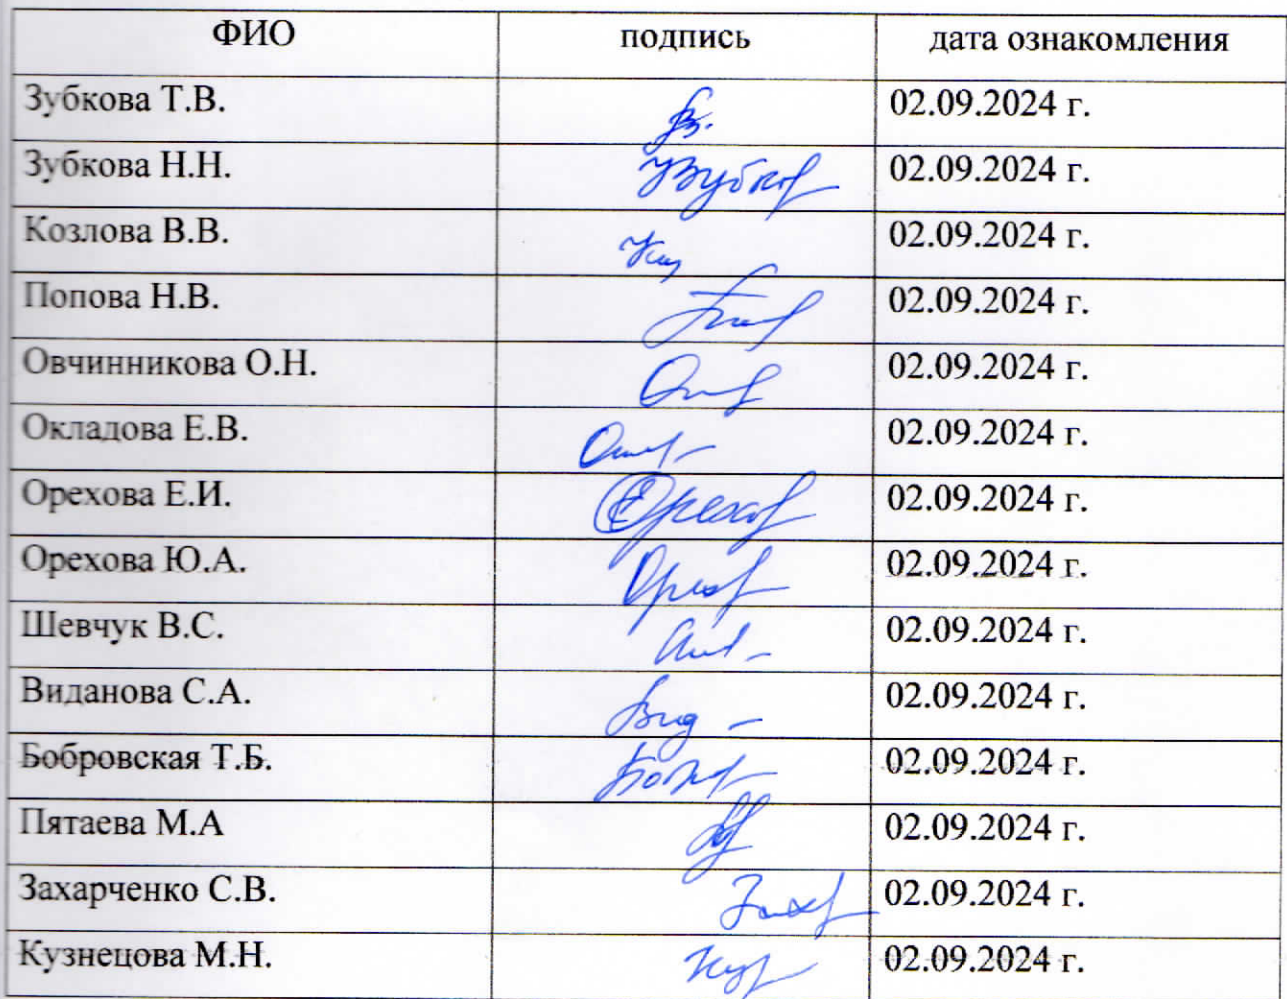 ФИО подпись дата ознакомления
Зубкова Т.В. 02.09.2024 г.
Зубкова Н.Н. 02.09.2024 г.
Козлова В.В. 02.09.2024 г.
Попова Н.В. 02.09.2024 г.
Овчинникова О.Н. 02.09.2024 г.
Окладова Е.В. 02.09.2024 г.
Орехова Е.И. 02.09.2024 г.
Орехова Ю.А. 02.09.2024 г.
Шевчук В.С. 02.09.2024 г.
Виданова С.А. 02.09.2024 г.
Бобровская Т.Б. 02.09.2024 г.
Пятаева М.А 02.09.2024 г.
Захарченко С.В. 02.09.2024 г.
Кузнецова М.Н. 02.09.2024 г.